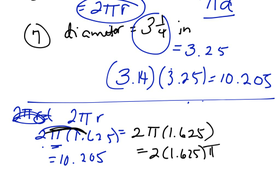 = 2πr
πd
⑦ diameter = 3 1/4 in
= 3.25
(3.14)(3.25) = 10.205
2πr
2π(1.625) = 2π(1.625)
= 10.205
= 2(1.625)π